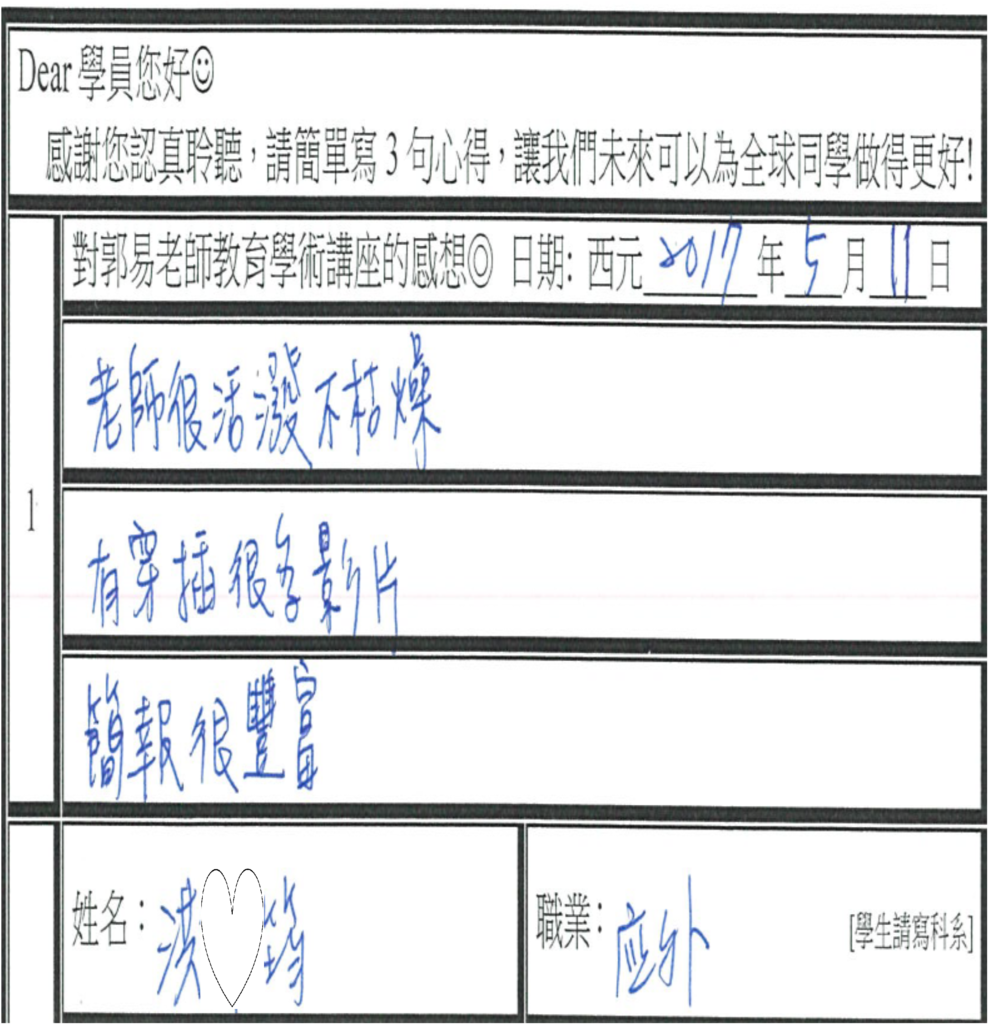 Dear 學員您好☺
感謝您認真聆聽，請簡單寫 3 句心得，讓我們未來可以為全球同學做得更好!
對郭易老師教育學術講座的感想◎ 日期: 西元 2017 年 5 月 11 日
老師很活潑不枯燥
1
有穿插很多影片
簡報很豐富
姓名：洪♡筠
職業: 應外 [學生請寫科系]